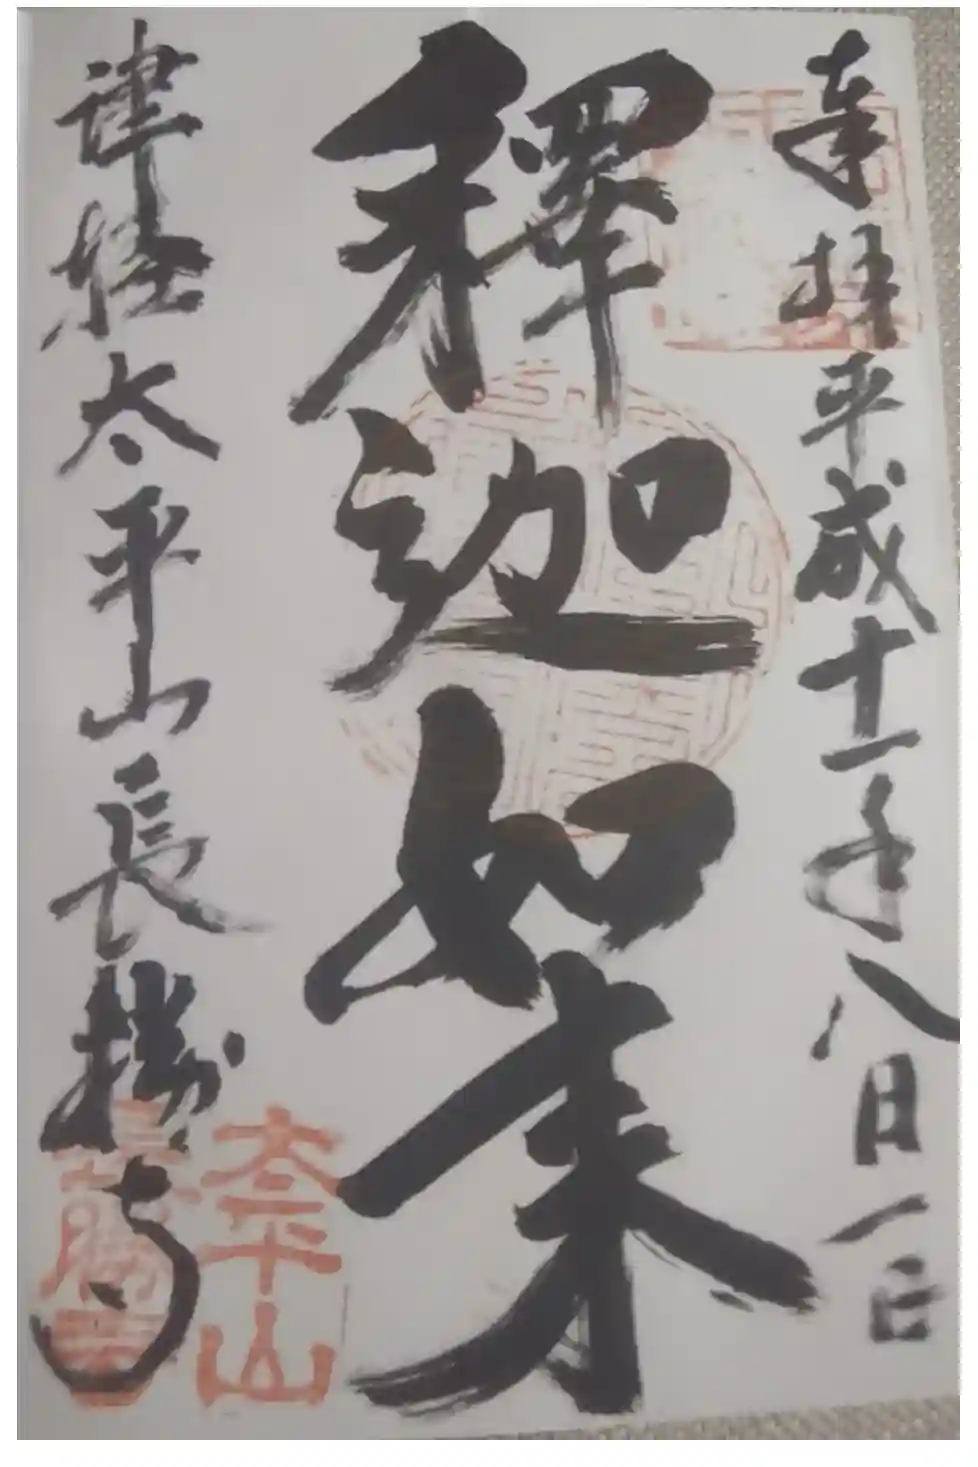 奉拝 平成十一年八月一日
釋迦如来
津軽太平山長勝寺
太平山
長勝寺